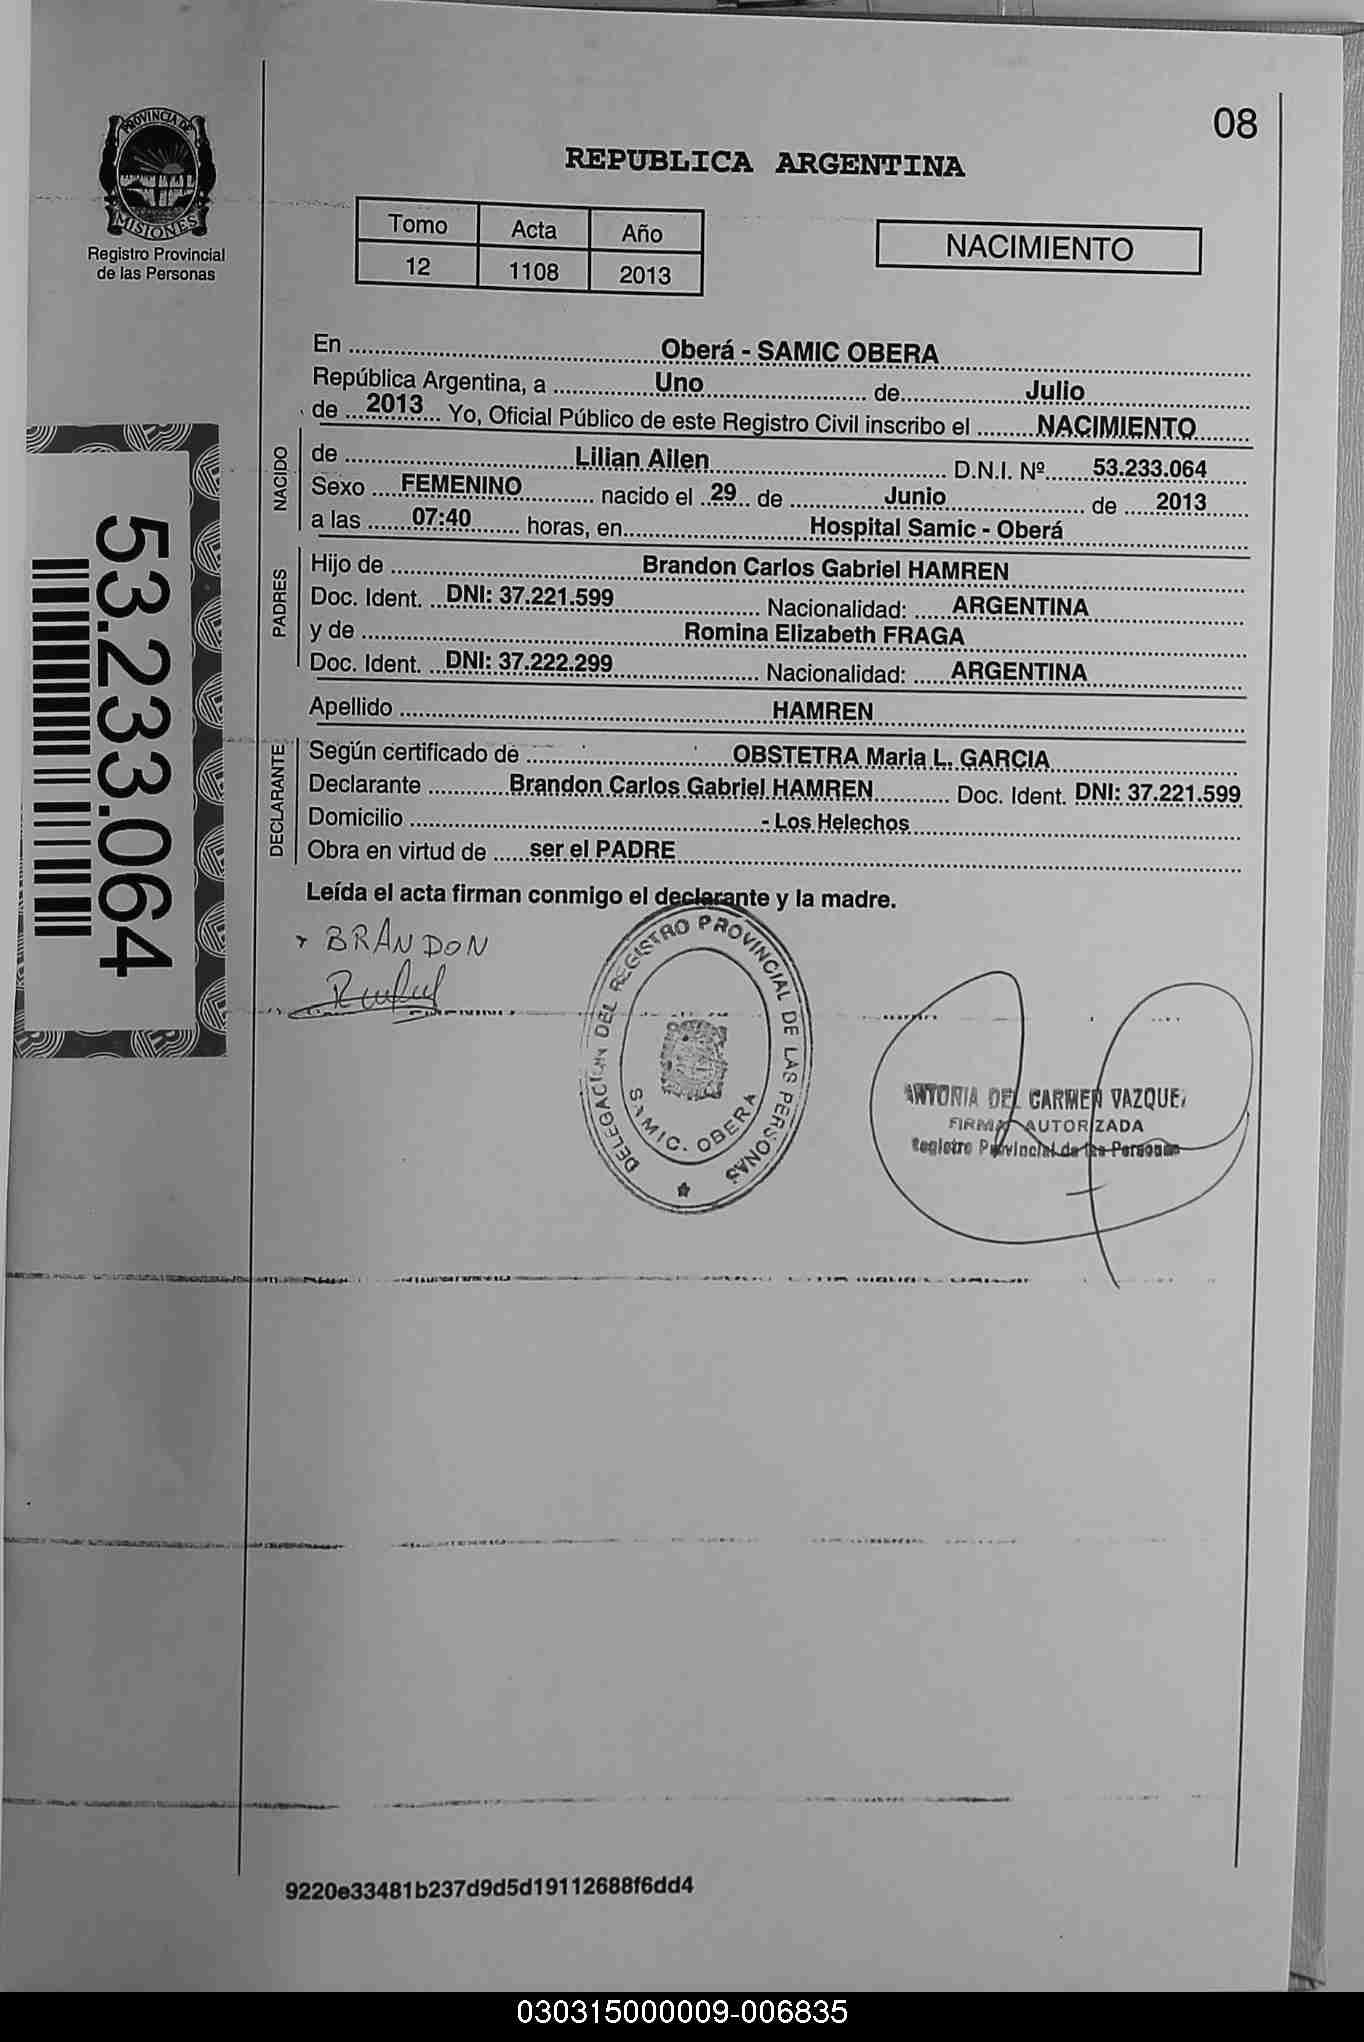 08
PROVINCIA DE
MISIONES
Registro Provincial
de las Personas
REPUBLICA ARGENTINA
Tomo Acta Año
12 1108 2013
NACIMIENTO
En Oberá - SAMIC OBERA
República Argentina, a Uno de Julio
de 2013 Yo, Oficial Público de este Registro Civil inscribo el NACIMIENTO
NACIDO
de Lilian Ailen D.N.I. Nº 53.233.064
Sexo FEMENINO nacido el 29 de Junio de 2013
a las 07:40 horas, en Hospital Samic - Oberá
PADRES
Hijo de Brandon Carlos Gabriel HAMREN
Doc. Ident. DNI: 37.221.599 Nacionalidad: ARGENTINA
y de Romina Elizabeth FRAGA
Doc. Ident. DNI: 37.222.299 Nacionalidad: ARGENTINA
Apellido HAMREN
DECLARANTE
Según certificado de OBSTETRA Maria L. GARCIA
Declarante Brandon Carlos Gabriel HAMREN Doc. Ident. DNI: 37.221.599
Domicilio - Los Helechos
Obra en virtud de ser el PADRE
Leída el acta firman conmigo el declarante y la madre.
53.233.064
BRANDON
DELEGACION DEL REGISTRO PROVINCIAL DE LAS PERSONAS
SAMIC. OBERA
ANTONIA DEL CARMEN VAZQUEZ
FIRMA AUTORIZADA
Registro Provincial de las Personas
9220e33481b237d9d5d19112688f6dd4
030315000009-006835